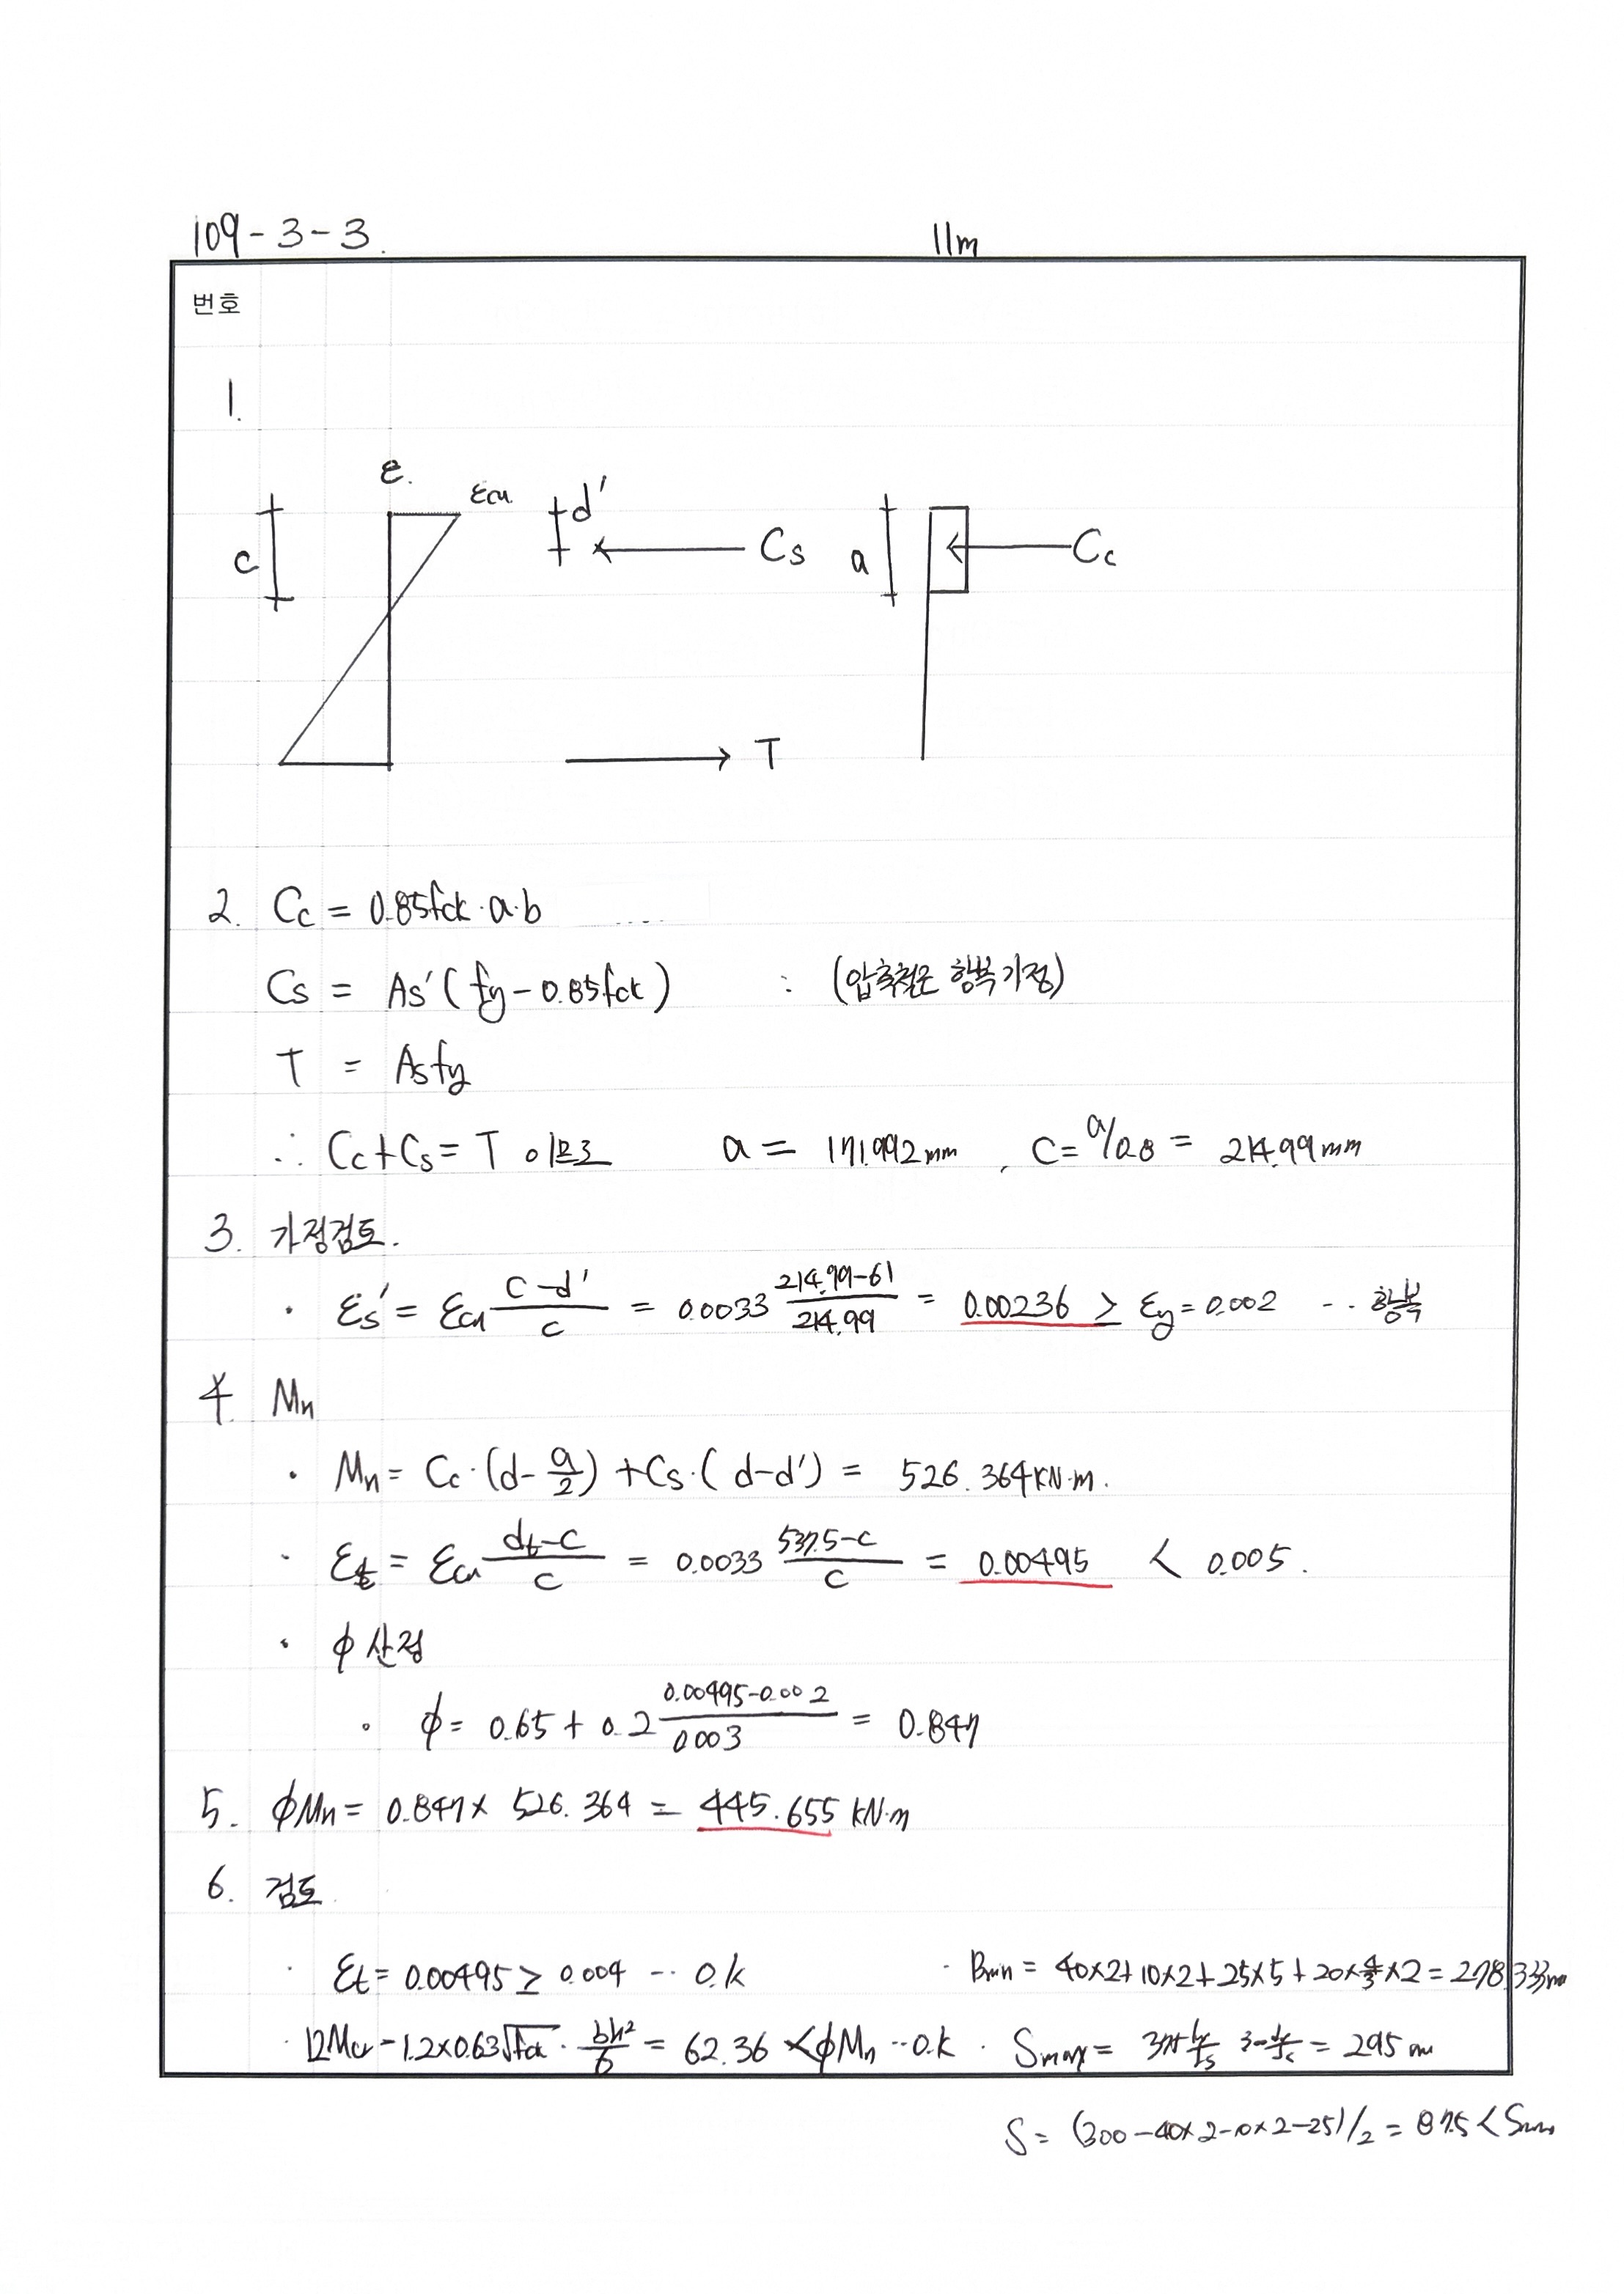 109-3-3. 11m
번호
1.
ε. εcu
c d' Cs a Cc
T
2. Cc = 0.85fck·a·b
Cs = As'(fy-0.85fck) : (압축철근 항복가정)
T = Asfy
∴ Cc+Cs = T 이므로 a = 171.992mm , c= a/0.8 = 214.99mm
3. 가정검토.
· εs' = εcu (c-d')/c = 0.0033 (214.99-61)/214.99 = 0.00236 ≥ εy = 0.002 -·· 항복
4. Mn
· Mn = Cc·(d-a/2) + Cs·(d-d') = 526.364kN·m.
· εt = εcu (dt-c)/c = 0.0033 (537.5-c)/c = 0.00495 < 0.005.
· φ 산정
· φ = 0.65 + 0.2 (0.00495-0.002)/0.003 = 0.847
5. φMn = 0.847× 526.364 = 445.655 kN·m
6. 검토.
· εt = 0.00495 ≥ 0.004 -·· O.k · Bmin = 40×2+10×2+25×5+20×4/3×2 = 278.333mm
· 1.2Mcr = 1.2×0.63√fck · bh²/6 = 62.36 < φMn ·· O.k · Smax = = 295 mm
S = (300-40×2-10×2-25)/2 = 87.5 < Smax